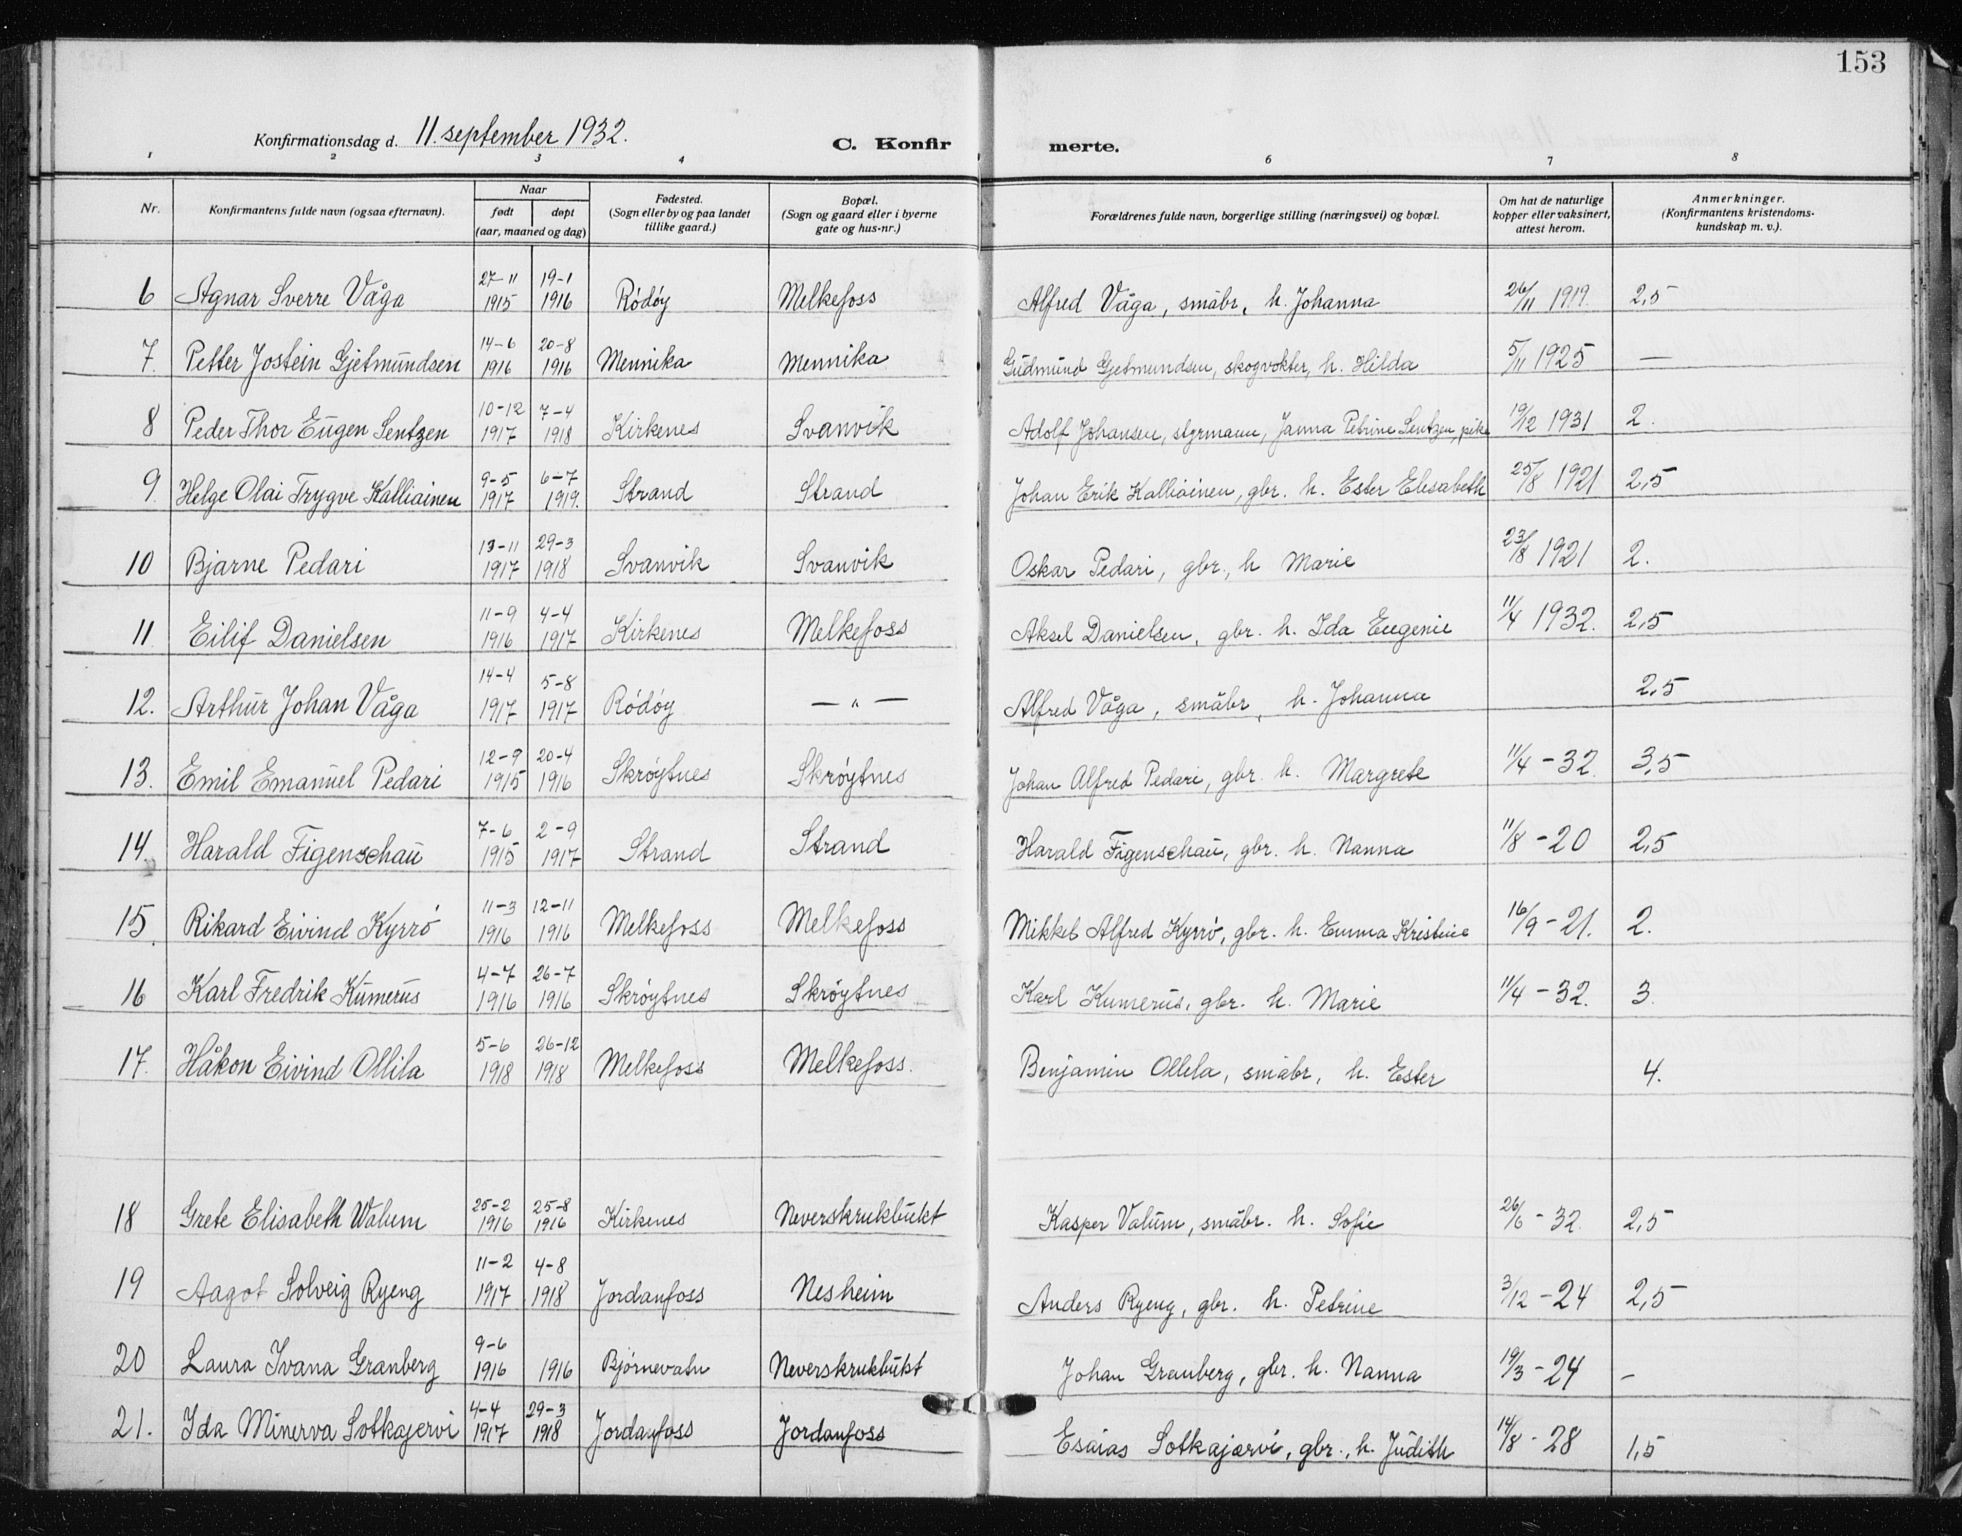 153
Konfirmationsdag d. 11. september 1932.
C. Konfir merte.
1 2 3 4 6 7 8
Nr.
Konfirmantens fulde navn (ogsaa efternavn).
Naar
født døpt
(aar, maaned og dag)
Fødested.
(Sogn eller by og paa landet
tillike gaard.)
Bopæl.
(Sogn og gaard eller i byerne
gate og hus-nr.)
Forældrenes fulde navn, borgerlige stilling (næringsvei) og bopæl.
Om hat de naturlige
kopper eller vaksinert,
attest herom.
Anmerkninger.
(Konfirmantens kristendoms-
kundskap m. v.).
27-11 19-1
6 Agnar Sverre Våga 1915 1916 Rödöy Melkefoss Alfred Våga, småbr, h. Johanna 26/11 1919. 2,5
14-6 20-8
7. Petter Jostein Gjetmundsen 1916 1916 Mennika Mennika Gudmund Gjetmundsen, skogvokter, h. Hilda 5/11 1925 —
10-12 7-4
8 Peder Thor Eugen Sentzen 1917 1918 Kirkenes Svanvik Adolf Johansen, styrmann, Janna Petrine Sentzen, pike 19/12 1931 2.
9-5 6-7
9. Helge Olai Trygve Kalliainen 1917 1919. Strand Strand Johan Erik Kalliainen, gbr. h. Ester Elisabeth 25/8 1921 2,5
13-11 29-3
10 Bjarne Pedari 1917 1918 Svanvik Svanvik Oskar Pedari, gbr., h Marie 23/8 1921 2.
11-9 4-4
11. Eilif Danielsen 1916 1917 Kirkenes Melkefoss Aksel Danielsen, gbr. h. Ida Eugenie 11/4 1932. 2,5
14-4 5-8
12. Arthur Johan Våga 1917 1917 Rödöy — " — Alfred Våga, småbr, h. Johanna 2,5
12-9 20-4
13. Emil Emanuel Pedari 1915 1916 Skröytnes Skröytnes Johan Alfred Pedari, gbr. h. Margrete 11/4 - 32. 3,5
7-6 2-9
14. Harald Figenschau 1915 1917 Strand Strand Harald Figenschau, gbr. h. Nanna 11/8 - 20 2,5
11-3 12-11
15. Rikard Eivind Kyrrö 1916 1916 Melkefoss Melkefoss Mikkel Alfred Kyrrö, gbr. h. Emma Kristine 16/9 - 21. 2.
4-7 26-7
16 Karl Fredrik Kumerus 1916 1916 Skröytnes Skröytnes Karl Kumerus, gbr. h. Marie 11/4 - 32. 3.
5-6 26-12
17. Håkon Eivind Ollila 1918 1918 Melkefoss Melkefoss. Benjamin Ollila, småbr, h. Ester 4.
25-2 25-8
18 Grete Elisabeth Walum 1916 1916 Kirkenes Neverskrukbukt Kasper Valum, småbr. h. Sofie 26/6 - 32. 2,5
11-2 4-8
19 Aagot Solveig Ryeng 1917 1918 Jordanfoss Nesheim Anders Ryeng, gbr. h. Petrine 3/12 - 24 2,5
9-6
20 Laura Ivana Granberg 1916 1916 Bjørnevatn Neverskrukbukt Johan Granberg, gbr. h. Nanna 19/3 - 24 -
4-4 29-3
21. Ida Minerva Sotkajervi 1917 1918 Jordanfoss Jordanfoss Esaias Sotkajærvi, gbr., h. Judith 14/8 - 28 1,5